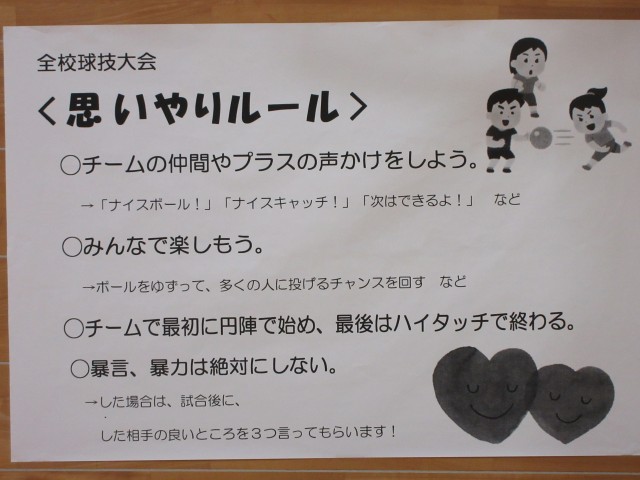 全校球技大会
＜思いやりルール＞
○チームの仲間やプラスの声かけをしよう。
→「ナイスボール！」「ナイスキャッチ！」「次はできるよ！」　など
○みんなで楽しもう。
→ボールをゆずって、多くの人に投げるチャンスを回す　など
○チームで最初に円陣で始め、最後はハイタッチで終わる。
○暴言、暴力は絶対にしない。
→した場合は、試合後に、
した相手の良いところを３つ言ってもらいます！